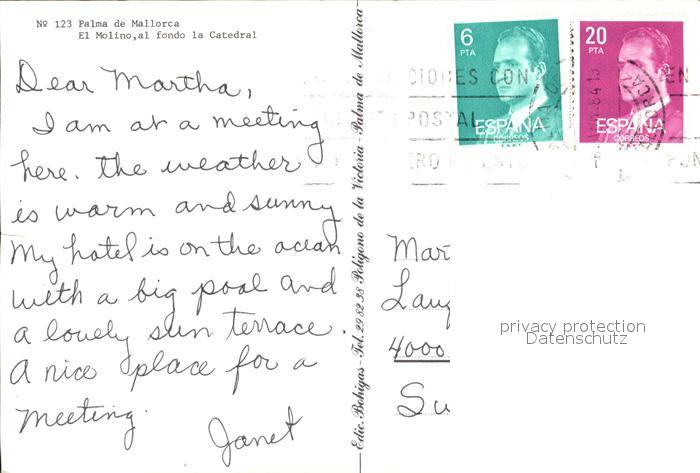 Nº 123 Palma de Mallorca
El Molino,al fondo la Catedral
Dear Martha,
I am at a meeting
here. the weather
is warm and sunny
My hotel is on the ocean
with a big pool and
a lovely sun terrace.
A nice place for a
meeting.
Janet
Edic. Bohigas-Tel. 22 82 38 Polígono de la Victoria-Palma de Mallorca
6
PTA
ESPAÑA
CORREOS
20
PTA
ESPAÑA
CORREOS
CIONES CON
POSTAL
EN
Mar
Laug
4000
Su
privacy protection
Datenschutz